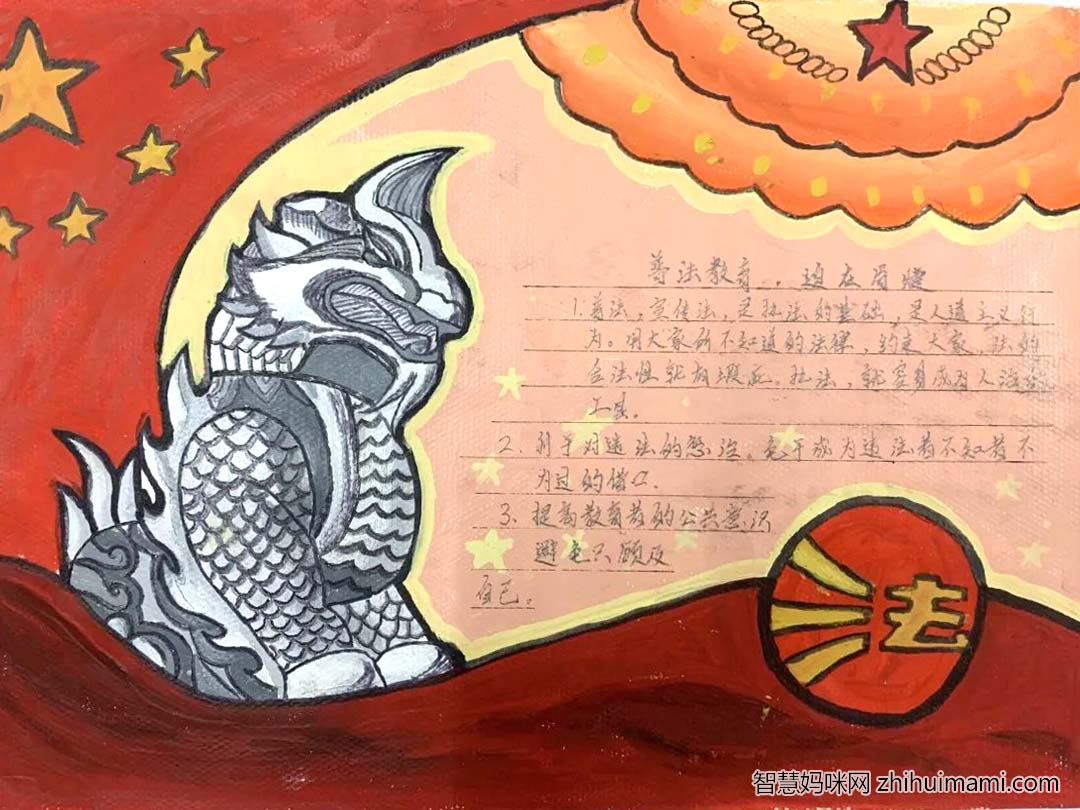 普法教育，迫在眉睫
1.普法，宣传法，是执法的基础，是人道主义行
为。用大家所不知道的法律，约定大家，法的
合法性就有瑕疵。执法，就容易成为人治的
工具。
2.利于对违法的惩治。免于成为违法者不知者不
为过的借口.
3.提高教育者的公共意识
避免只顾及
自己。
法
智慧妈咪网 zhihuimami.com